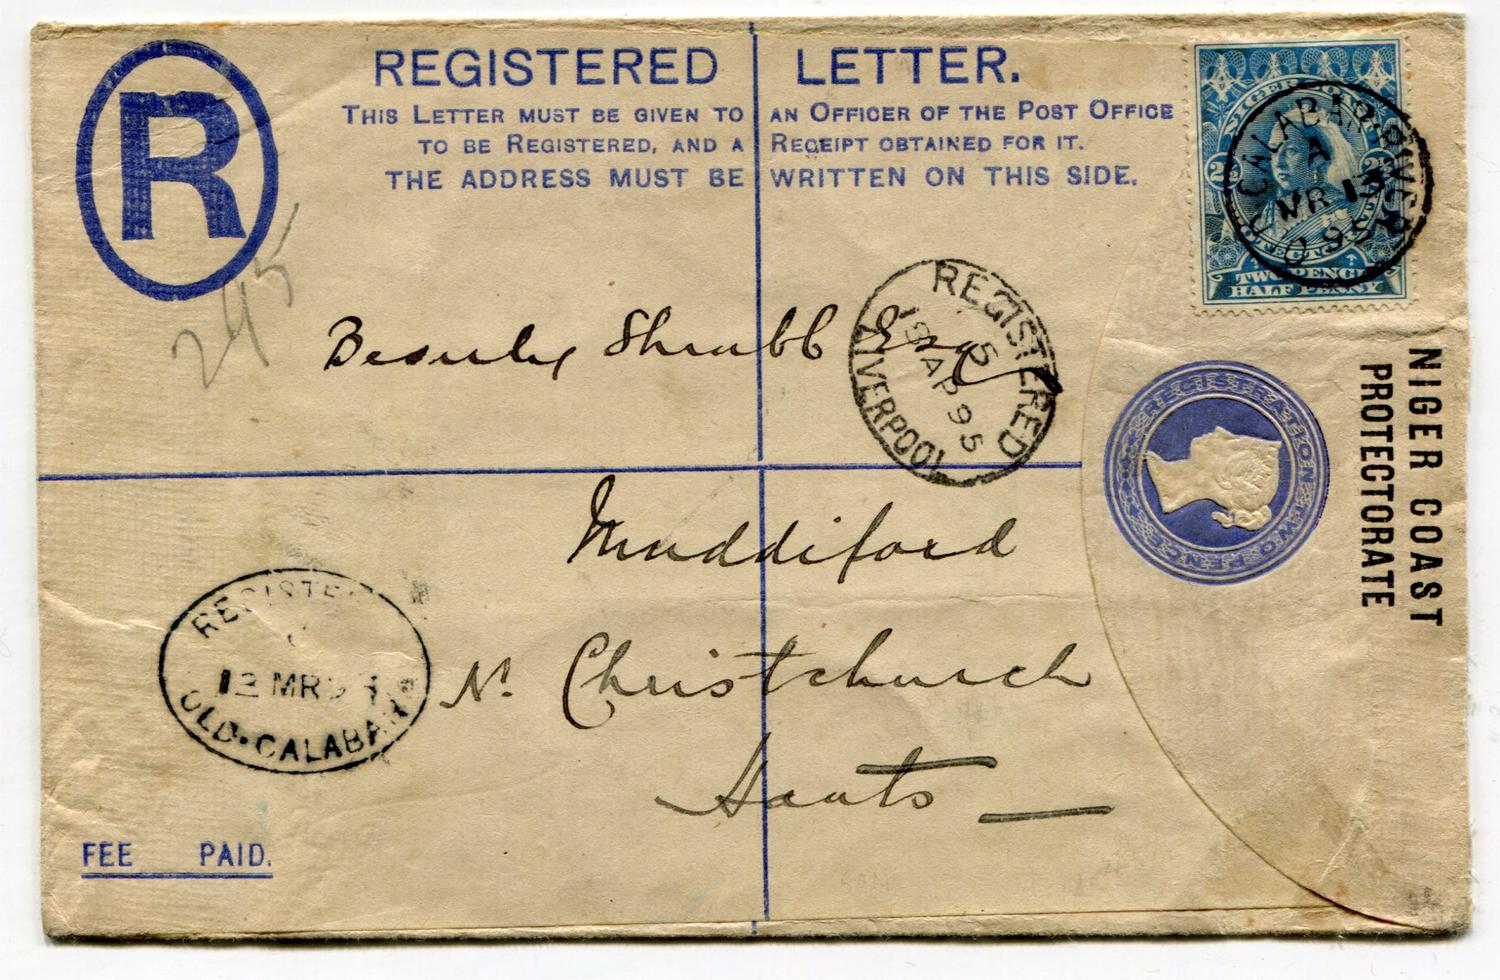 R
REGISTERED LETTER.
THIS LETTER MUST BE GIVEN TO AN OFFICER OF THE POST OFFICE
TO BE REGISTERED, AND A RECEIPT OBTAINED FOR IT.
THE ADDRESS MUST BE WRITTEN ON THIS SIDE.
TWO PENCE
HALF PENNY
CALABAR RIVER
A
MR 13
95
REGISTERED
5
19 AP 95
LIVERPOOL
245
Beverley Shrubb Esq
Muddiford
Nr Christchurch
Hants
REGISTRATION TWO PENCE
NIGER COAST
PROTECTORATE
REGISTE
13 MR 9
OLD CALABAR
FEE PAID.